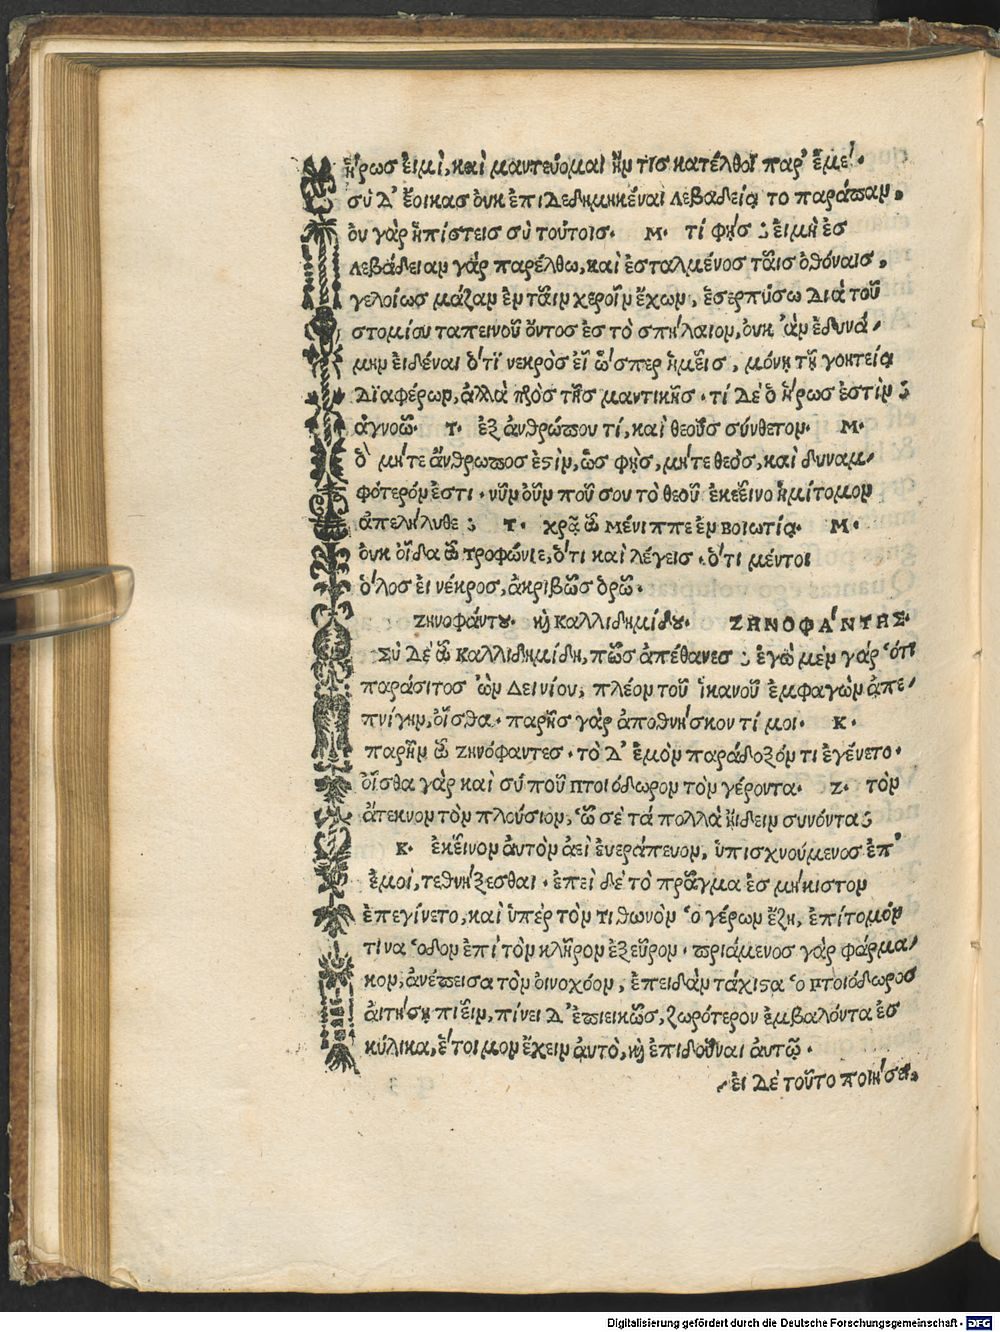 ἥρωσ εἰμὶ, καὶ μαντεύομαι ἤν τισ κατέλθοι παρ' ἐμέ.
σὺ δ' ἔοικασ ὀυκ ἐπιδεδημηκέναι λεβαδείᾳ το παράπαν,
ὀυ γὰρ ἠπίστεισ σὺ τούτοισ. Μ. τί φῄσ; ἐιμὴ ἐσ
λεβάδειαν γὰρ παρέλθω, καὶ ἐσταλμένοσ τᾶισ ὀθόναισ,
γελοίωσ μάζαν ἐν τᾶιν χεροῖν ἔχων, ἐσερπύσω διὰ τοῦ
στομίου ταπεινοῦ ὄντοσ ἐσ τὸ σπήλαιον, ὀυκ ἂν ἐδυνά-
μην ἐιδέναι ὅτι νεκρὸσ εἶ ὥσπερ ἡμεῖσ, μόνῃ τῇ γοητείᾳ
διαφέρων, ἀλλὰ πρὸσ τῆσ μαντικῆσ. τί δὲ ὁ ἥρωσ ἐστὶν;
ἀγνοῶ. Τ. ἐξ ἀνθρώπου τί, καὶ θεοῦσ σύνθετον. Μ.
ὃ μήτε ἄνθρωποσ ἐστὶν, ὡσ φῂσ, μήτε θεὸσ, καὶ συναμ-
φότερόν ἐστι. νῦν ὀῦν ποῦ σου τὸ θεοῦ ἐκεῖνο ἡμίτομον
ἀπελήλυθε; Τ. χρᾷ ὦ μένιππε ἐν βοιωτίᾳ. Μ.
ὀυκ ὀῖδα ὦ τροφώνιε, ὅτι καὶ λέγεισ. ὅτι μέντοι
ὅλοσ ἐι νέκροσ, ἀκριβῶσ ὁρῶ.
ζηνοφάντου. καὶ καλλιδημίδου. ΖΗΝΟΦΆΝΤΗΣ.
Σὺ δὲ ὦ καλλιδημίδη, πῶσ ἀπέθανεσ; ἐγὼ μὲν γὰρ ὅτι
παράσιτοσ ὢν δεινίου, πλέον τοῦ ἱκανοῦ ἐμφαγὼν ἀπε-
πνίγην, ὀῖσθα. παρῆσ γὰρ ἀποθνήσκοντί μοι. Κ.
παρῆν ὦ ζηνόφαντεσ. τὸ δ' ἐμὸν παράδοξόν τι ἐγένετο.
ὀῖσθα γὰρ καὶ σύ που πτοιόδωρον τὸν γέροντα. Ζ. τὸν
ἄτεκνον τὸν πλούσιον, ᾧ σέ τά πολλὰ ᾔδειν συνόντα;
Κ. ἐκεῖνον ἀυτὸν ἀεὶ ἐυεράπευον, ὑπισχνούμενοσ ἐπ'
ἐμοί, τεθνήξεσθαι. ἐπεὶ δὲ τὸ πρᾶγμα ἐσ μήκιστον
ἐπεγίνετο, καὶ ὑπὲρ τὸν τιθωνὸν ὁ γέρων ἔζη, ἐπίτομόν
τινα ὁδον ἐπὶ τὸν κλῆρον ἐξεῦρον. πριάμενοσ γὰρ φάρμα-
κον, ἀνέπεισα τὸν ὀινοχόον, ἐπειδὰν τάχιστα ὁ πτοιόδωροσ
ἀιτήσῃ πιεῖν, πίνει δ' ἐπιεικῶσ, ζωρότερον ἐμβαλόντα ἐσ
κύλικα, ἕτοιμον ἔχειν ἀυτὸ, καὶ ἐπιδοῦναι ἀυτῷ.
ἐι δὲ τοῦτο ποιήσει,
Digitalisierung gefördert durch die Deutsche Forschungsgemeinschaft - DFG